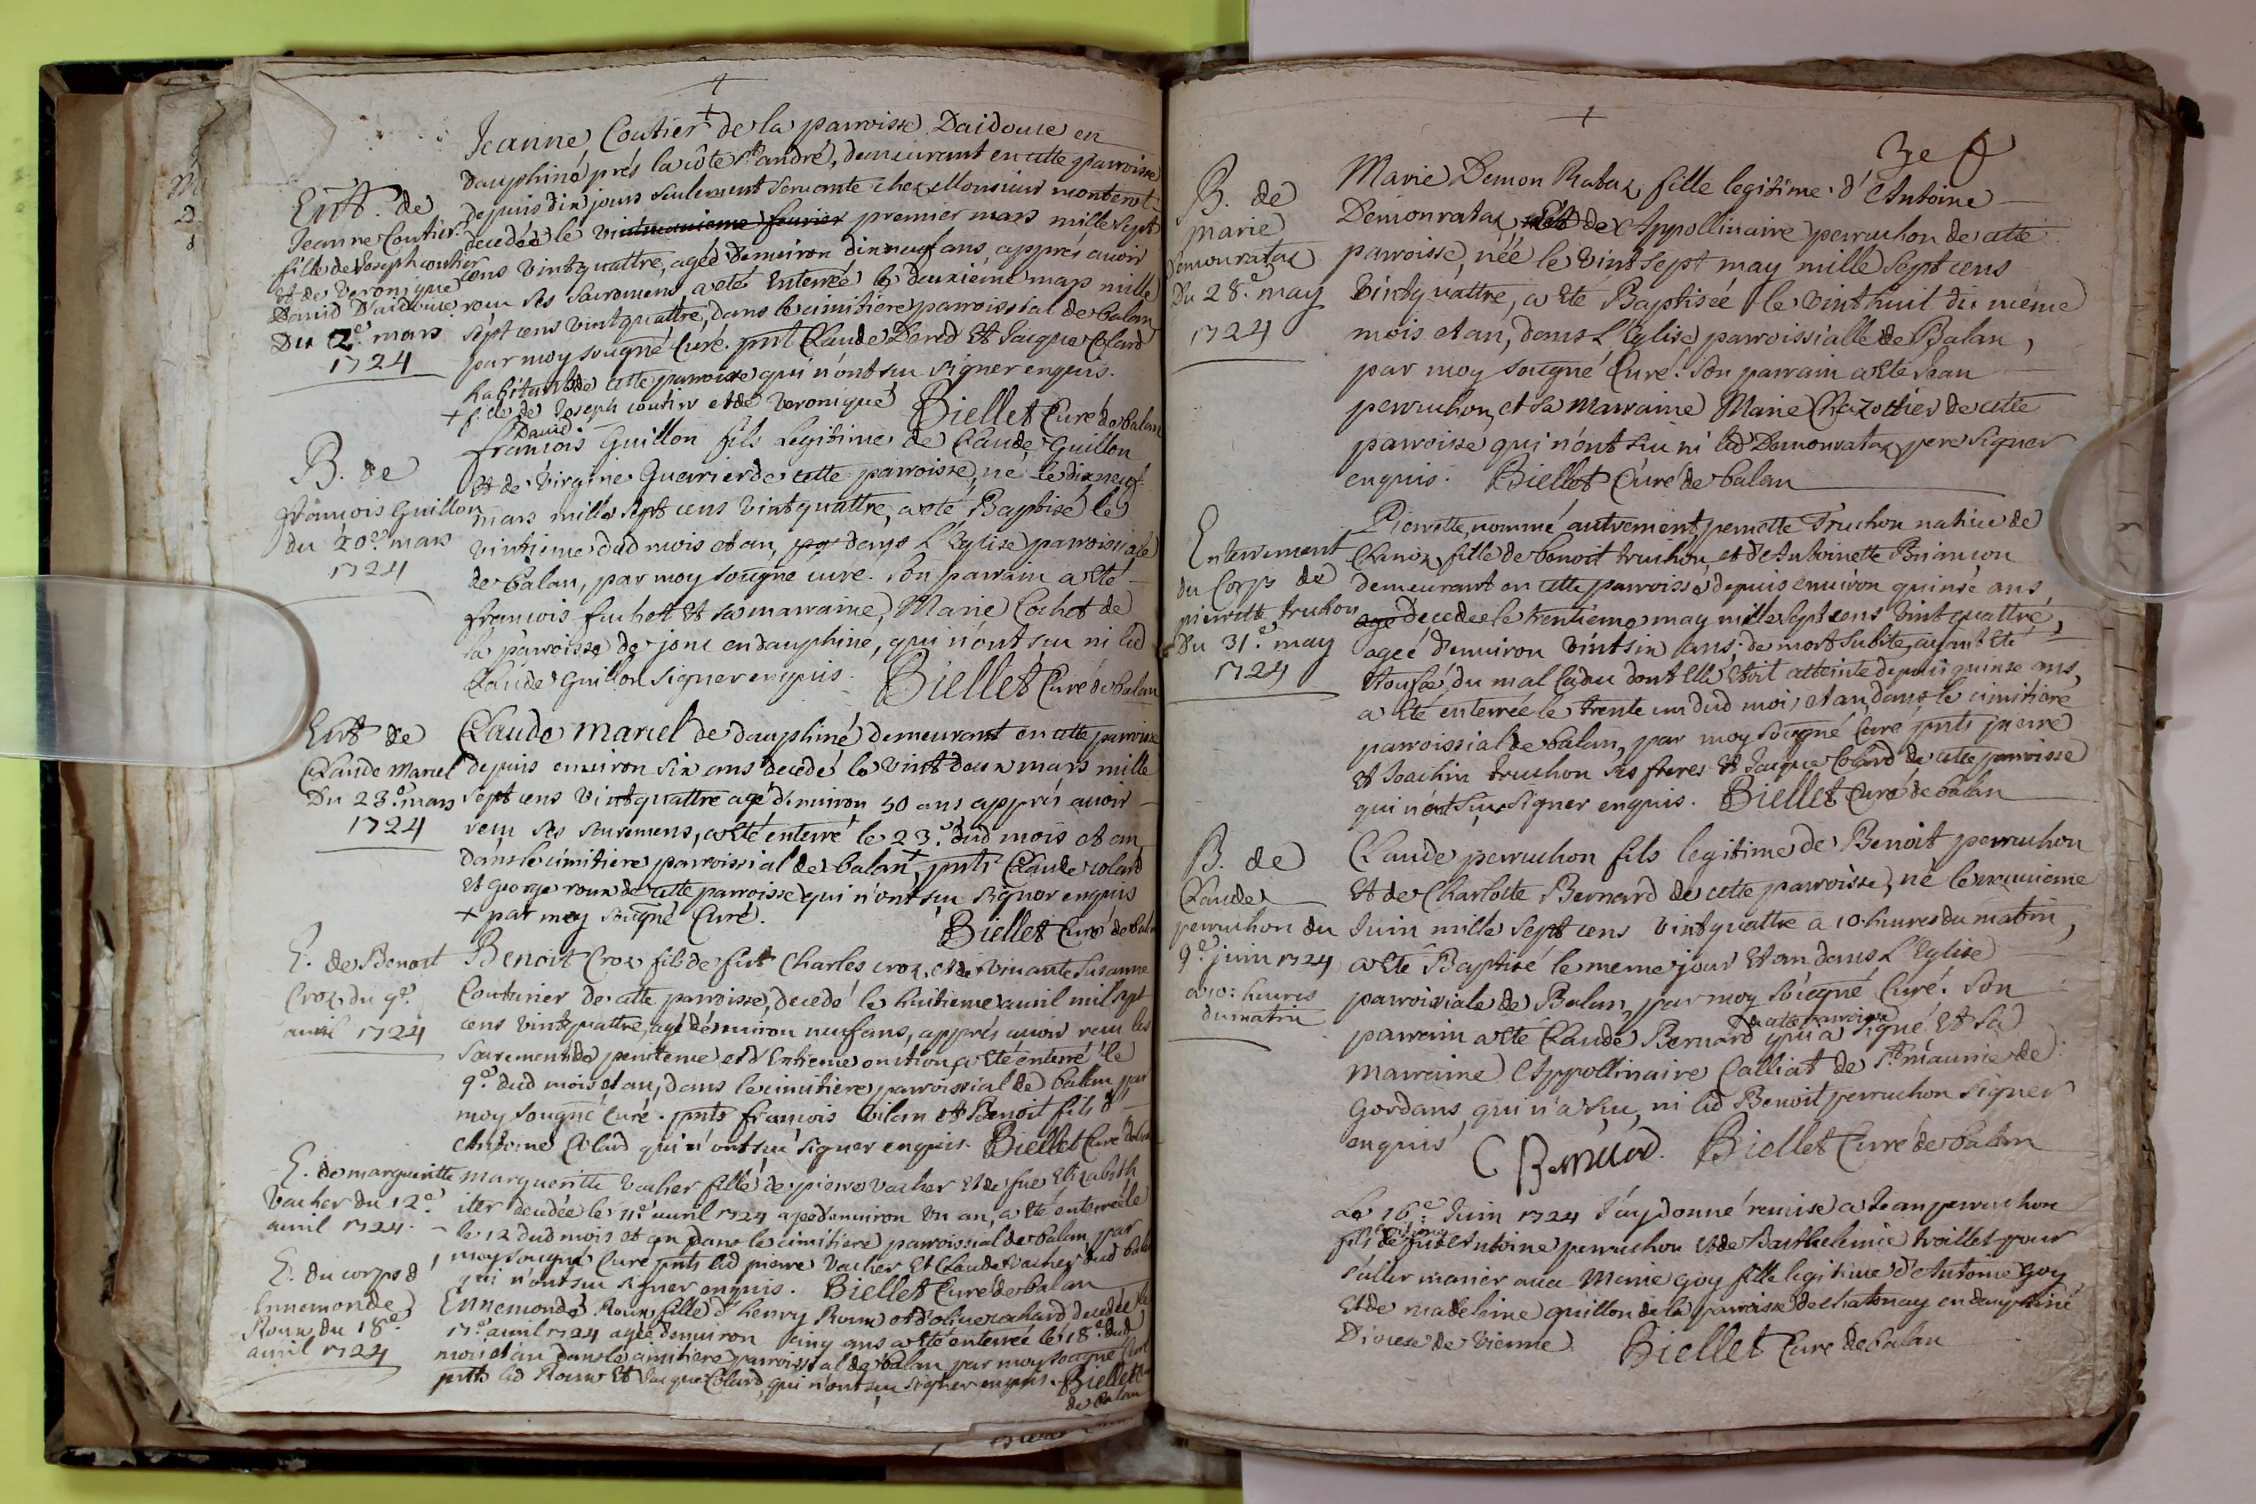 Jeanne Coutier + de la parroisse Daidouse en
Dauphiné prés la côte st andré, demeurant en cette parroisse
depuis dix jours seulement servante chez Monsieur montenot
decedée le premier mars mille sept
cens vintquattre, agée demviron dixneuf ans apprés avoir
receu ses sacremens, a eté Enterrée le deuxiéme mars mille
sept cens vintquattre, dans le cimitiere parroissial de balan
par moy sougné Curé. pnt Claude Dered Et Jacque Colard
habitants de cette parroisse qui n'ont scu signer enquis.
+ fille de Joseph coutier et de veronique David Biellet Curé de balan
Ent. de
Jeanne Coutier
fille de Joseph coutier
et de Veronique
David D'aidouse
Du 2e. mars
1724
françois Guillon fils Legitime de Claude Guillon
Et de virgine Guerrier de cette parroisse, né le dixneuf
mars mille sept cens vintquattre, a eté Baptisé le
vintiéme dud mois et an, dans L'Eglise parroissiale
de balan, par moy sougné curé. son parrain a eté
françois fuchet Et sa marraine, Marie Cochet de
la parroisse de jonc en dauphiné, qui n'ont scu ni led
Claude Guillon signer enquis. Biellet Curé de balan
B. de
françois Guillon
du 20e. mars
1724
Claude Mariel de dauphiné demeurant en cette parroisse
depuis environ six ans decedé le vintdeux mars mille
sept cens vintquattre agé d'environ 50 ans apprés avoir
receu ses sacremens, a eté enterré le 23e. dud mois et an
dans le cimitiere parroissial de balan +, pnts Claude colard
Et George roux de cette parroisse qui n'ont scu signer enquis
+ par moy sougné Curé. Biellet Curé de balan
Ent de
Claude Mariel
Du 23e. mars
1724
Benoit Croz fils de fut Charles croz, et de vivante Susanne
Couturier de cette parroisse, decedé le huitieme avril mil sept
cens vintquattre, agé d'environ neuf ans, apprés avoir receu les
sacrements de penitence et d'Extreme onction a eté enterré le
9e. dud mois et an, dans le cimitiere parroissial de balan par
moy sougné Curé. pnts françois vilan et Benoit fils d'
Antoine Colard qui n'ont scu signer enquis. Biellet Curé de balan
E. de Benoit
Croz du 9e.
avril 1724
margueritte vacher fille de pierre vacher Et de fue Elizabeth
iter decedée le 11e. avril 1724 agée d'environ un an, a eté enterrée le
le 12 dud mois et an dans le cimitiere parroissial de balan, par
moy sougné Curé pnts led pierre vacher Et Claude vacher dud balan
qui n'ont scu signer enquis. Biellet Curé de balan
E. de margueritte
Vacher du 12e.
avril 1724.
Ennemonde Roux fille d'henry Roux et d'olive rahard decedée le
17e. avril 1724 agée d'environ cinq ans a eté enterrée le 18e. dud
mois et an dans le cimitiere parroissial de balan par moy sougné Curé
pnts led Roux Et Jacque Colard, qui n'ont scu signer enquis. Biellet Curé
de balan
E. du corps d'
Ennemonde
Roux du 18e.
avril 1724
3e f
Marie Demon Rataz, fille legitime d'Antoine
Demonrataz, de Appollinaire perruchon de cette
parroisse, née le vint sept may mille sept cens
vintquattre, a eté Baptisée le vinthuit du méme
mois et an, dans L'Eglise parroissialle de Balan,
par moy sougné Curé. Son parrain a eté Jean
perruchon, et sa Marraine Marie Chazottier de cette
parroisse qui n'ont scu ni led Demonrataz pere signer
enquis. Biellet Curé de balan
B. de
Marie
Demonrataz
Du 28e. may
1724
Pierrette, nommé autrement pernette Truchon native de
Chanoz, fille de benoit truchon, et d'Antoinette Briançon
demeurant en cette parroisse depuis environ quinse ans
decedée le trentiéme may mille sept cens vintquattre,
agée d'environ vintsix ans, de mort subite, ayant eté
etoufée du mal caduc dont elle etoit atteinte depuis quinse ans,
a eté enterrée le trente un dud mois et an, dans le cimitiere
parroissial de balan, par moy sougné Curé pnts pierre
et Joachin truchon ses freres Et Jacque Colard de cette parroisse
qui n'ont scu signer enquis. Biellet Curé de balan
Enterrement
du Corps de
pierrette truchon
Du 31e. may
1724
Claude perruchon fils legitime de Benoit perruchon
Et de Charlotte Bernard de cette parroisse, né le neuvieme
Juin mille sept cens vintquattre a 10 heures du matin,
a eté Baptisé le meme jour Et an dans L'Eglise
parroissiale de Balan, par moy sousigné Curé. Son
parrain a eté Claude Bernard de cette parroisse qui a signé Et sa
marraine Appollinaire Calliat de st maurice de
Gordans, qui n'a scu, ni led Benoit perruchon signer
enquis C Bernard. Biellet Curé de balan
B. de
Claude
perruchon du
9e. juin 1724
a 10: heures
du matin
Le 16e: Juin 1724 J'ay donné remise a Jean perruchon
fils de fut Antoine perruchon Et de Barthelemie troillet pour
s'aller marier avec Marie goy fille legitime d'Antoine Goy
Et de madeleine guillon de la parroisse de chatonay en dauphiné
Diocese de vienne. Biellet Curé de balan